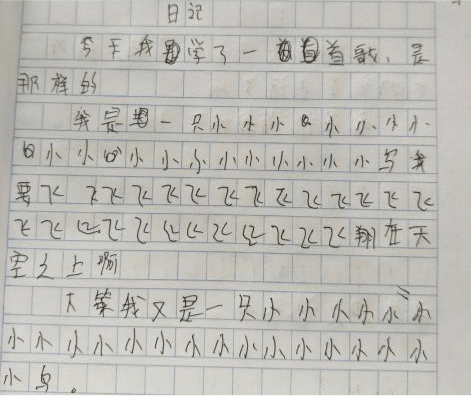 日记
今天我学了一首歌，是
那样的
我是一只小小小小小小小
小小小小小小小小小小小鸟我
要飞飞飞飞飞飞飞飞飞飞飞飞飞飞
飞飞飞飞飞飞飞飞飞飞飞飞翔在天
空之上啊
我又是一只小小小小小小
小小小小小小小小小小小小小小小
小鸟。